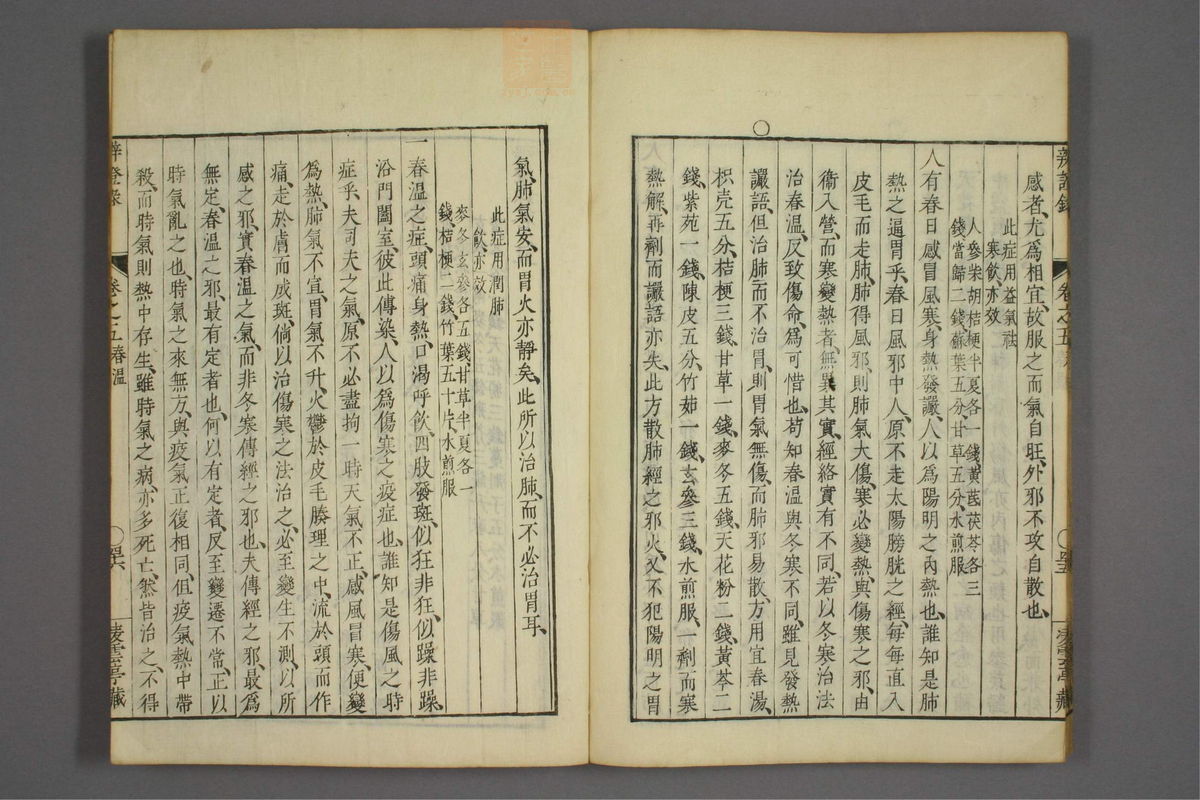 感者、尤爲相宜、故服之而氣自旺、外邪不攻自散也、
此症用益氣祛
寒飲、亦效
人參柴胡桔梗半夏各一錢黃芪茯苓各三
錢當歸二錢蘇葉五分、甘草五分、水煎服
人有春日感冒風寒、身熱發讝、人以爲陽明之內熱也、誰知是肺
熱之逼胃乎、春日風邪中人、原不走太陽膀胱之經、每每直入
皮毛而走肺、肺得風邪、則肺氣大傷、寒必變熱、與傷寒之邪、由
衞入營而寒變熱者無異、其實、經絡實有不同、若以冬寒治法
治春溫、反致傷命、爲可惜也、苟知春溫與冬寒不同、雖見發熱
讝語、但治肺而不治胃、則胃氣無傷、而肺邪易散、方用宜春湯、
枳壳五分、桔梗三錢、甘草一錢、麥冬五錢、天花粉二錢、黃芩二
錢、紫苑一錢、陳皮五分、竹茹一錢、玄參三錢、水煎服、一劑而寒
熱解、再劑而讝語亦失、此方散肺經之邪火、又不犯陽明之胃
辨證錄 卷之五
氣、肺氣安、而胃火亦靜矣、此所以治肺、而不必治胃耳、
此症用潤肺
飲、亦效
麥冬玄參各五錢甘草半夏各一
錢、桔梗二錢、竹葉五十片、水煎服
一春溫之症、頭痛身熱、口渴呼飲、四肢發斑、似狂非狂、似躁非躁、
沿門闔室、彼此傳染、人以爲傷寒之疫症也、誰知是傷風之時
症乎、夫司天之氣、原不必盡拘一時天氣不正、感風冒寒、便變
爲熱、肺氣不宣、胃氣不升、火鬱於皮毛腠理之中、流於頭而作
痛、走於膚而成斑、倘以治傷寒之法治之、必至變生不測、以所
感之邪、實春溫之氣、而非冬寒傳經之邪也、夫傳經之邪、最爲
無定、春溫之邪、最有定者也、何以有定者、反至變遷不常、正以
時氣亂之也、時氣之來無方、與疫氣正復相同、但疫氣熱中帶
殺、而時氣則熱中存生、雖時氣之病、亦多死亡、然皆治之不得
辨證錄 卷之五 春溫